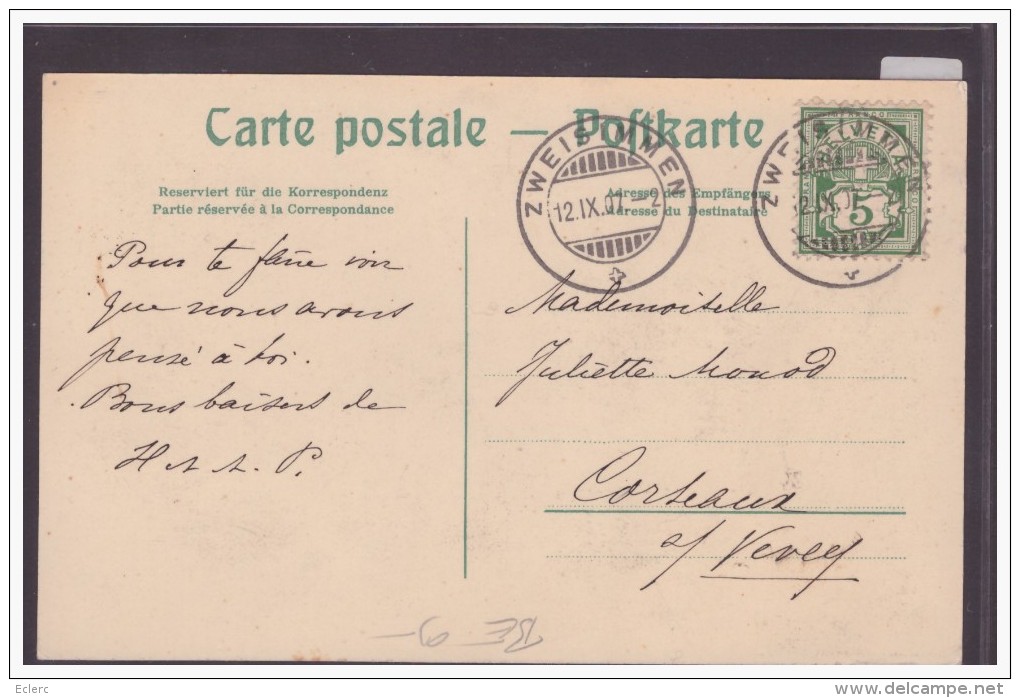 Carte postale — Postkarte
Reserviert für die Korrespondenz
Partie réservée à la Correspondance
Adresse des Empfängers
Adresse du Destinataire
ZWEISIMMEN
12.IX.07.–2
ZWEISIMMEN
12.IX.07
5
Pour te faire voir
que nous avons
pensé à toi.
Bons baisers de
H et A. P.
Mademoiselle
Juliette Monod
Corseaux
s/ Vevey
BE 9-
Eclerc
www.delcampe.net